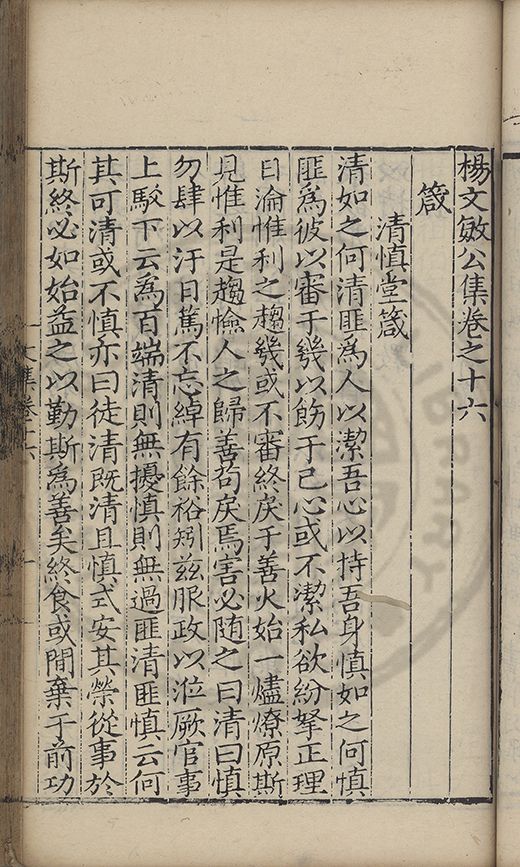 楊文敏公集卷之十六
箴
清慎堂箴
清如之何清匪為人以潔吾心以持吾身慎如之何慎
匪為彼以審于幾以飭于己心或不潔私欲紛拏正理
日淪惟利之趨幾或不審終戾于善火始一燼燎原斯
見惟利是趨憸人之歸善苟戾焉害必随之曰清曰慎
勿肆以汙日篤不忘綽有餘裕矧茲服政以涖厥官事
上馭下云為百端清則無擾慎則無過匪清匪慎云何
其可清或不慎亦曰徒清既清且慎式安其榮從事於
斯終必如始益之以勤斯為善矣終食或間棄于前功
文集卷十六